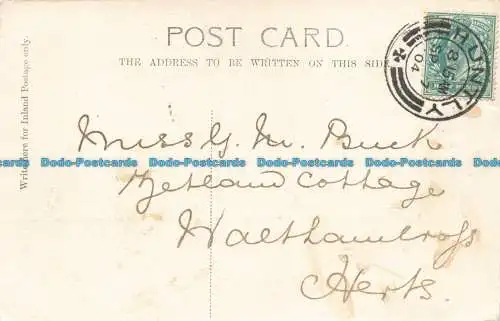 POST CARD.
THE ADDRESS TO BE WRITTEN ON THIS SIDE
Write here for Inland Postage only.
HUNTLY
8 15 M
SP
04
Miss G. M. Buck
Zetland Cottage
Walthamcross
Herts.
Dodo-Postcards Dodo-Postcards Dodo-Postcards Dodo-Postcards